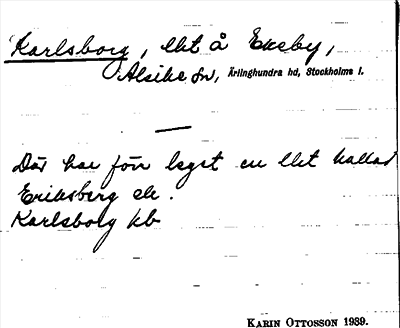 Karlsborg, lht å Ekeby,
Alsike sn, Ärlinghundra hd, Stockholms l.
—
Där har förr legat en lht kallad
Eriksberg el.
Karlsborg kb
KARIN OTTOSSON 1939.